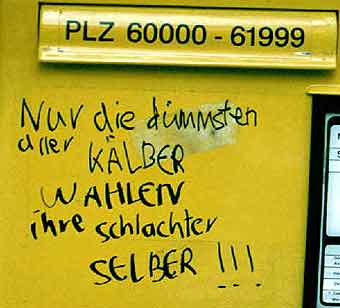 PLZ 60000 - 61999
Nur die dümmsten
aller KÄLBER
WAHLEN
ihre schlachter
SELBER !!!